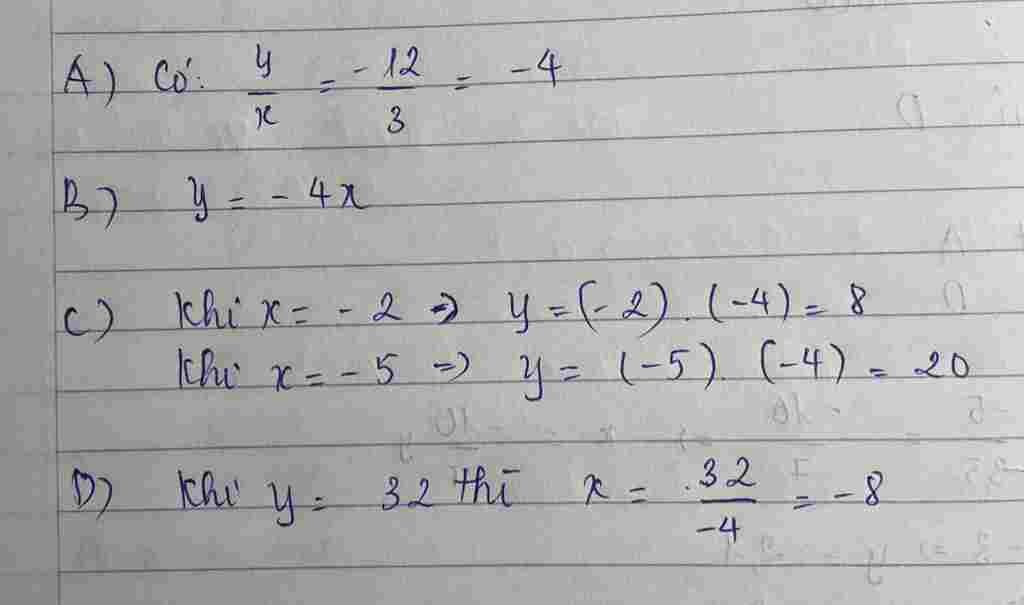 A) Có: y/x = -12/3 = -4
B) y = -4x
C) Khi x = -2 => y = (-2).(-4) = 8
Khi x = -5 => y = (-5).(-4) = 20
D) Khi y = 32 thì x = 32/-4 = -8